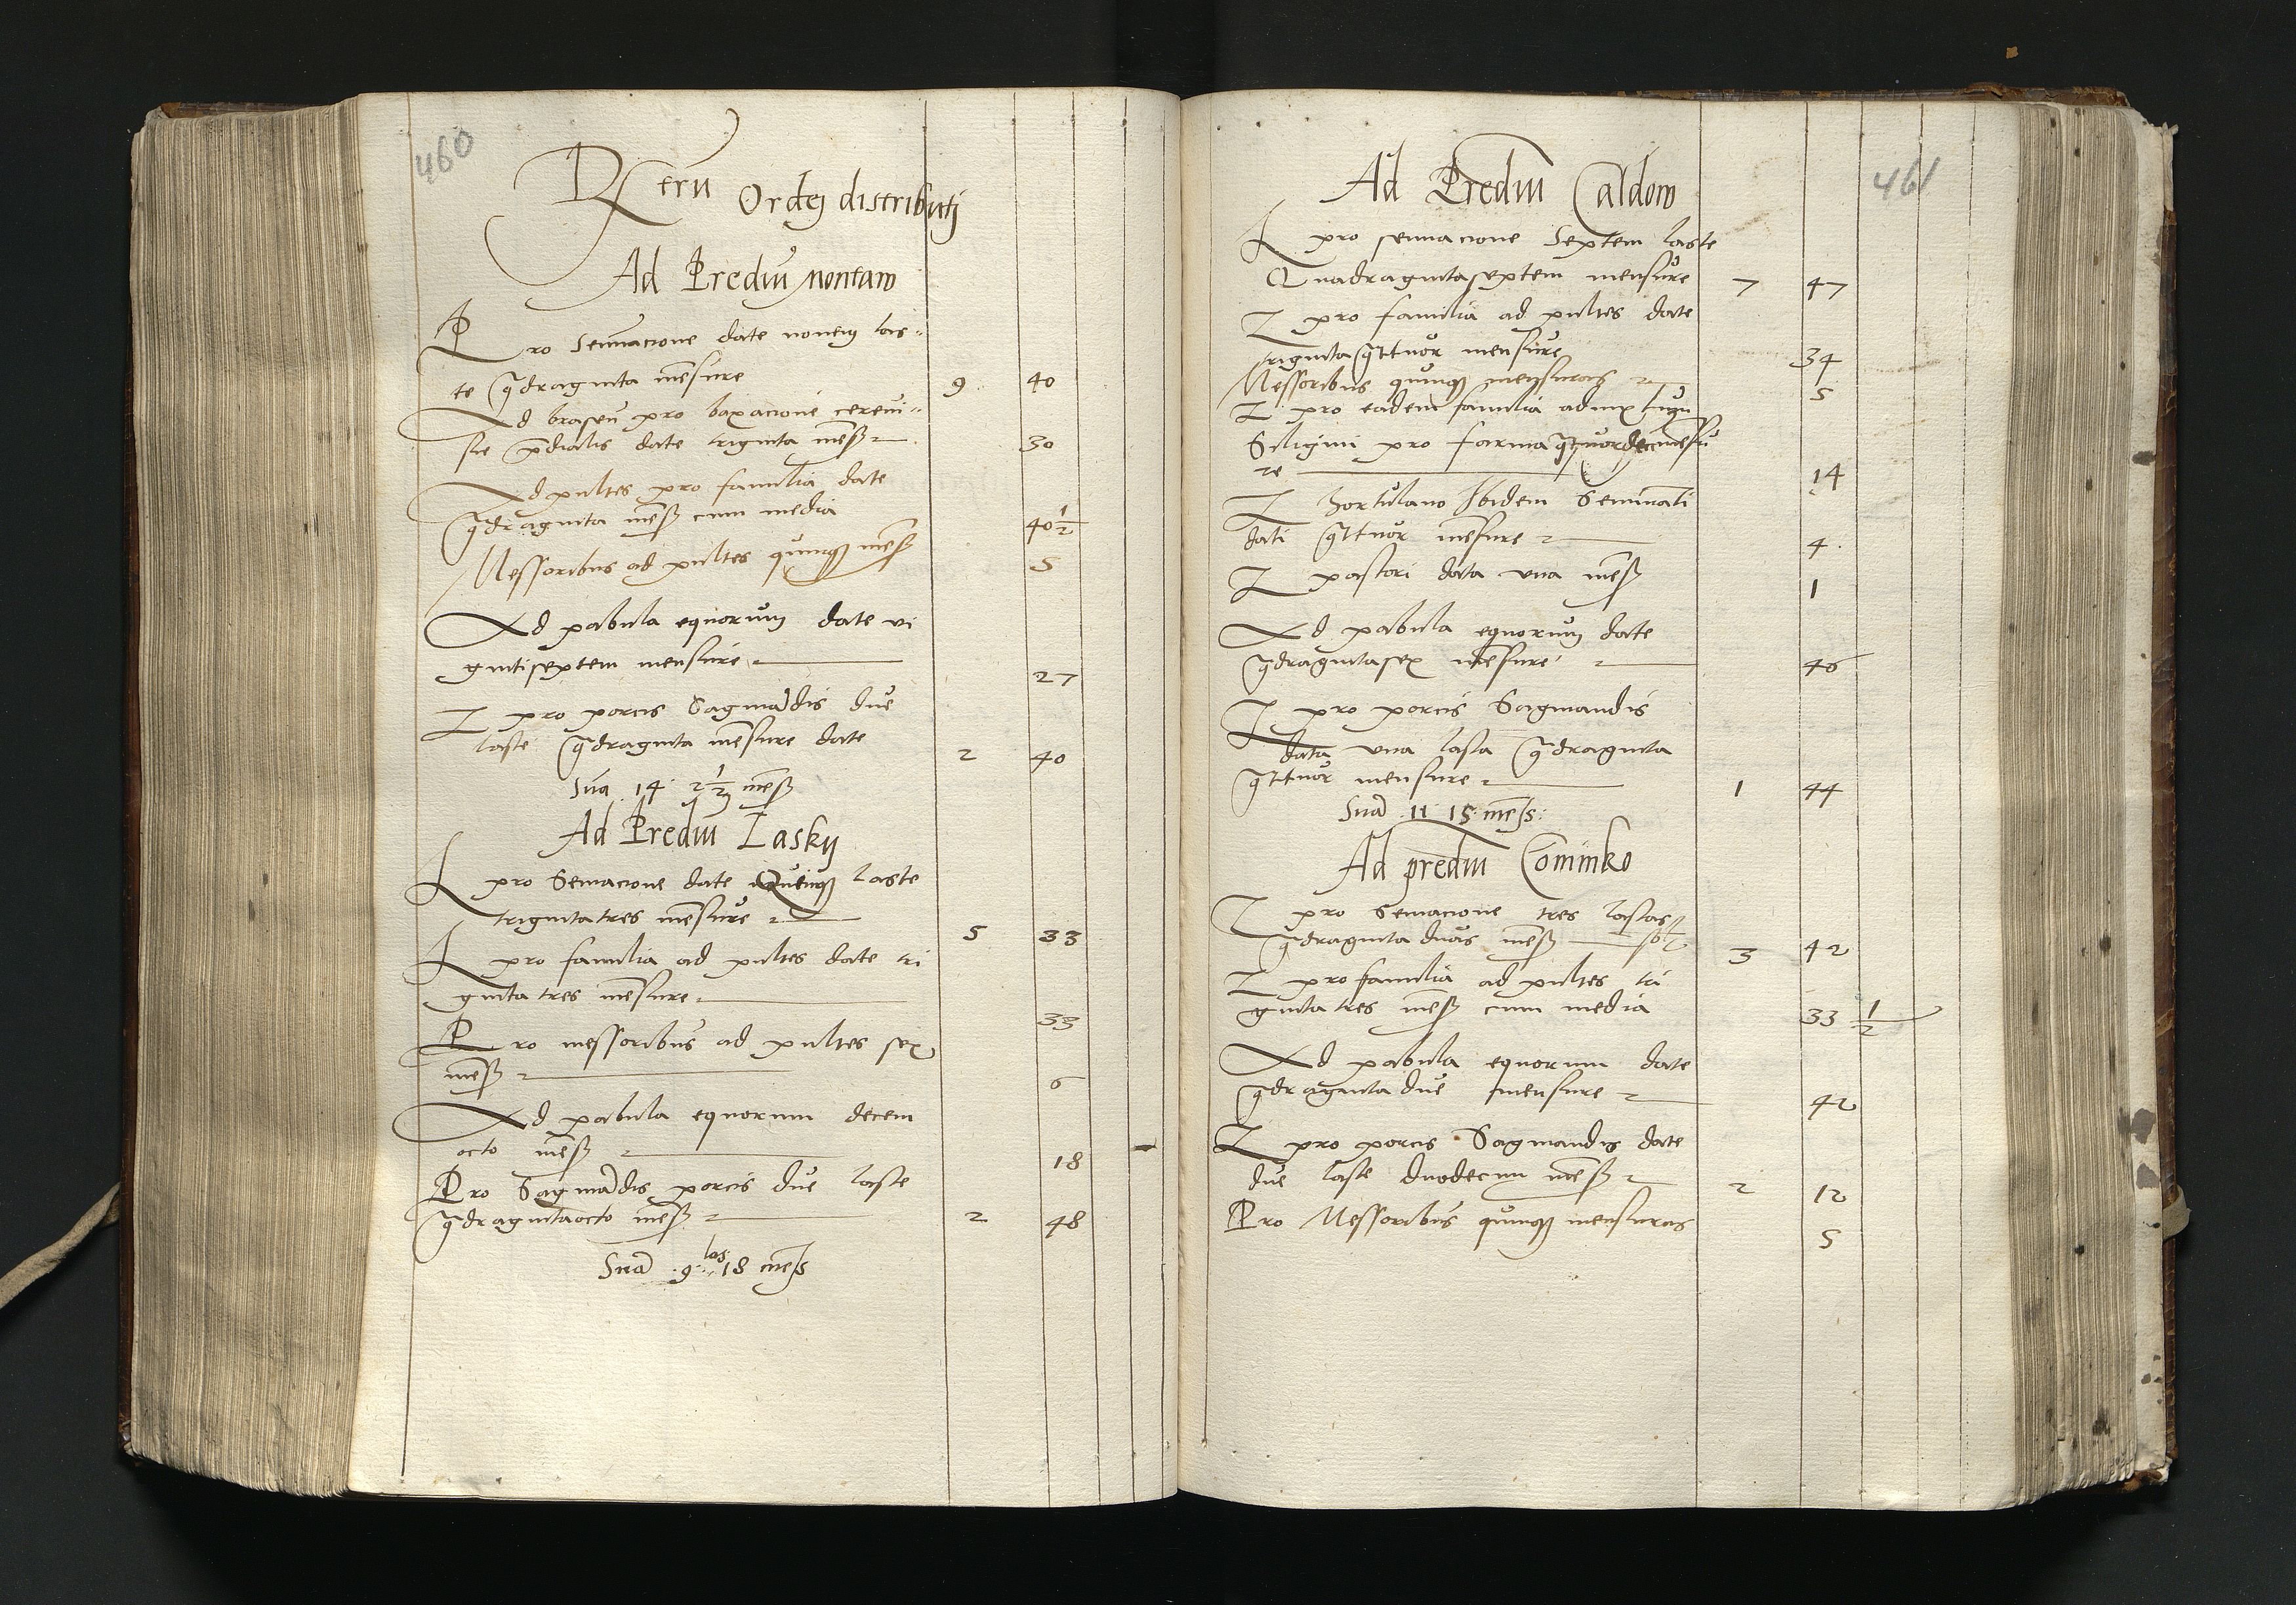 460
Rerū Ordej distributj
Ad Prediū Nontaw
Pro Seminacione date novem las⸗
te q̄draginta mēsure 9 40
Ad braseū pro baxacione cerevi⸗
sie p̄dialis date triginta mēß 30
Ad pultes pro familia date
q̄draginta mēß cum media 40 ½
Messoribus ad pultes quinqꝫ mēß 5
Ad pabula equorum date vi
gintiseptem mensure 27
I pro porcis Saginādis due
laste q̄draginta mēsure date 2 40
Sūa 14 2 ½ mēß
Ad Prediū Lasky
I pro Semacione date Quinqꝫ laste
triginta tres mēsure 5 33
I pro familia ad pultes date tri
ginta tres mēsure 33
Pro messoribus ad pultes sex
mēß 6
Ad pabula equorum decem
octo mēß 18
Pro Saginādis porcis due laste
q̄dragintaocto mēß 2 48
Suā 9 las: 18 mēs
461
Ad Prediū Caldow
I pro semacione Septem laste
Quadragintaseptem mensure 7 47
I pro familia ad pultes date
triginta q̄ttuor mensure 34
Messoribus quinqꝫ mensuras 5
I pro eadem familia
Siligini pro farina q̄tuordecim mēsu
re 14
I hortulano Ibidem Seminati
dati q̄ttuor mēsure 4
I pastori data una mēß 1
Ad pabula equorum date
q̄dragintasex mēsure 46
I pro porcis Saginandis
data una lasta q̄draginta
q̄ttuor mensure 1 44
Suā 11 15 mēs:
Ad prediū Cominko
I pro Semacione tres lastas
q̄draginta duas mēß 3 42
I pro familia ad pultes tri
ginta tres mēß cum media 33 ½
Ad pabula equorum date
q̄draginta due mensure 42
I pro porcis Saginandis date
due laste duodecim mēß 2 12
Pro Messoribus quinqꝫ mensuras 5